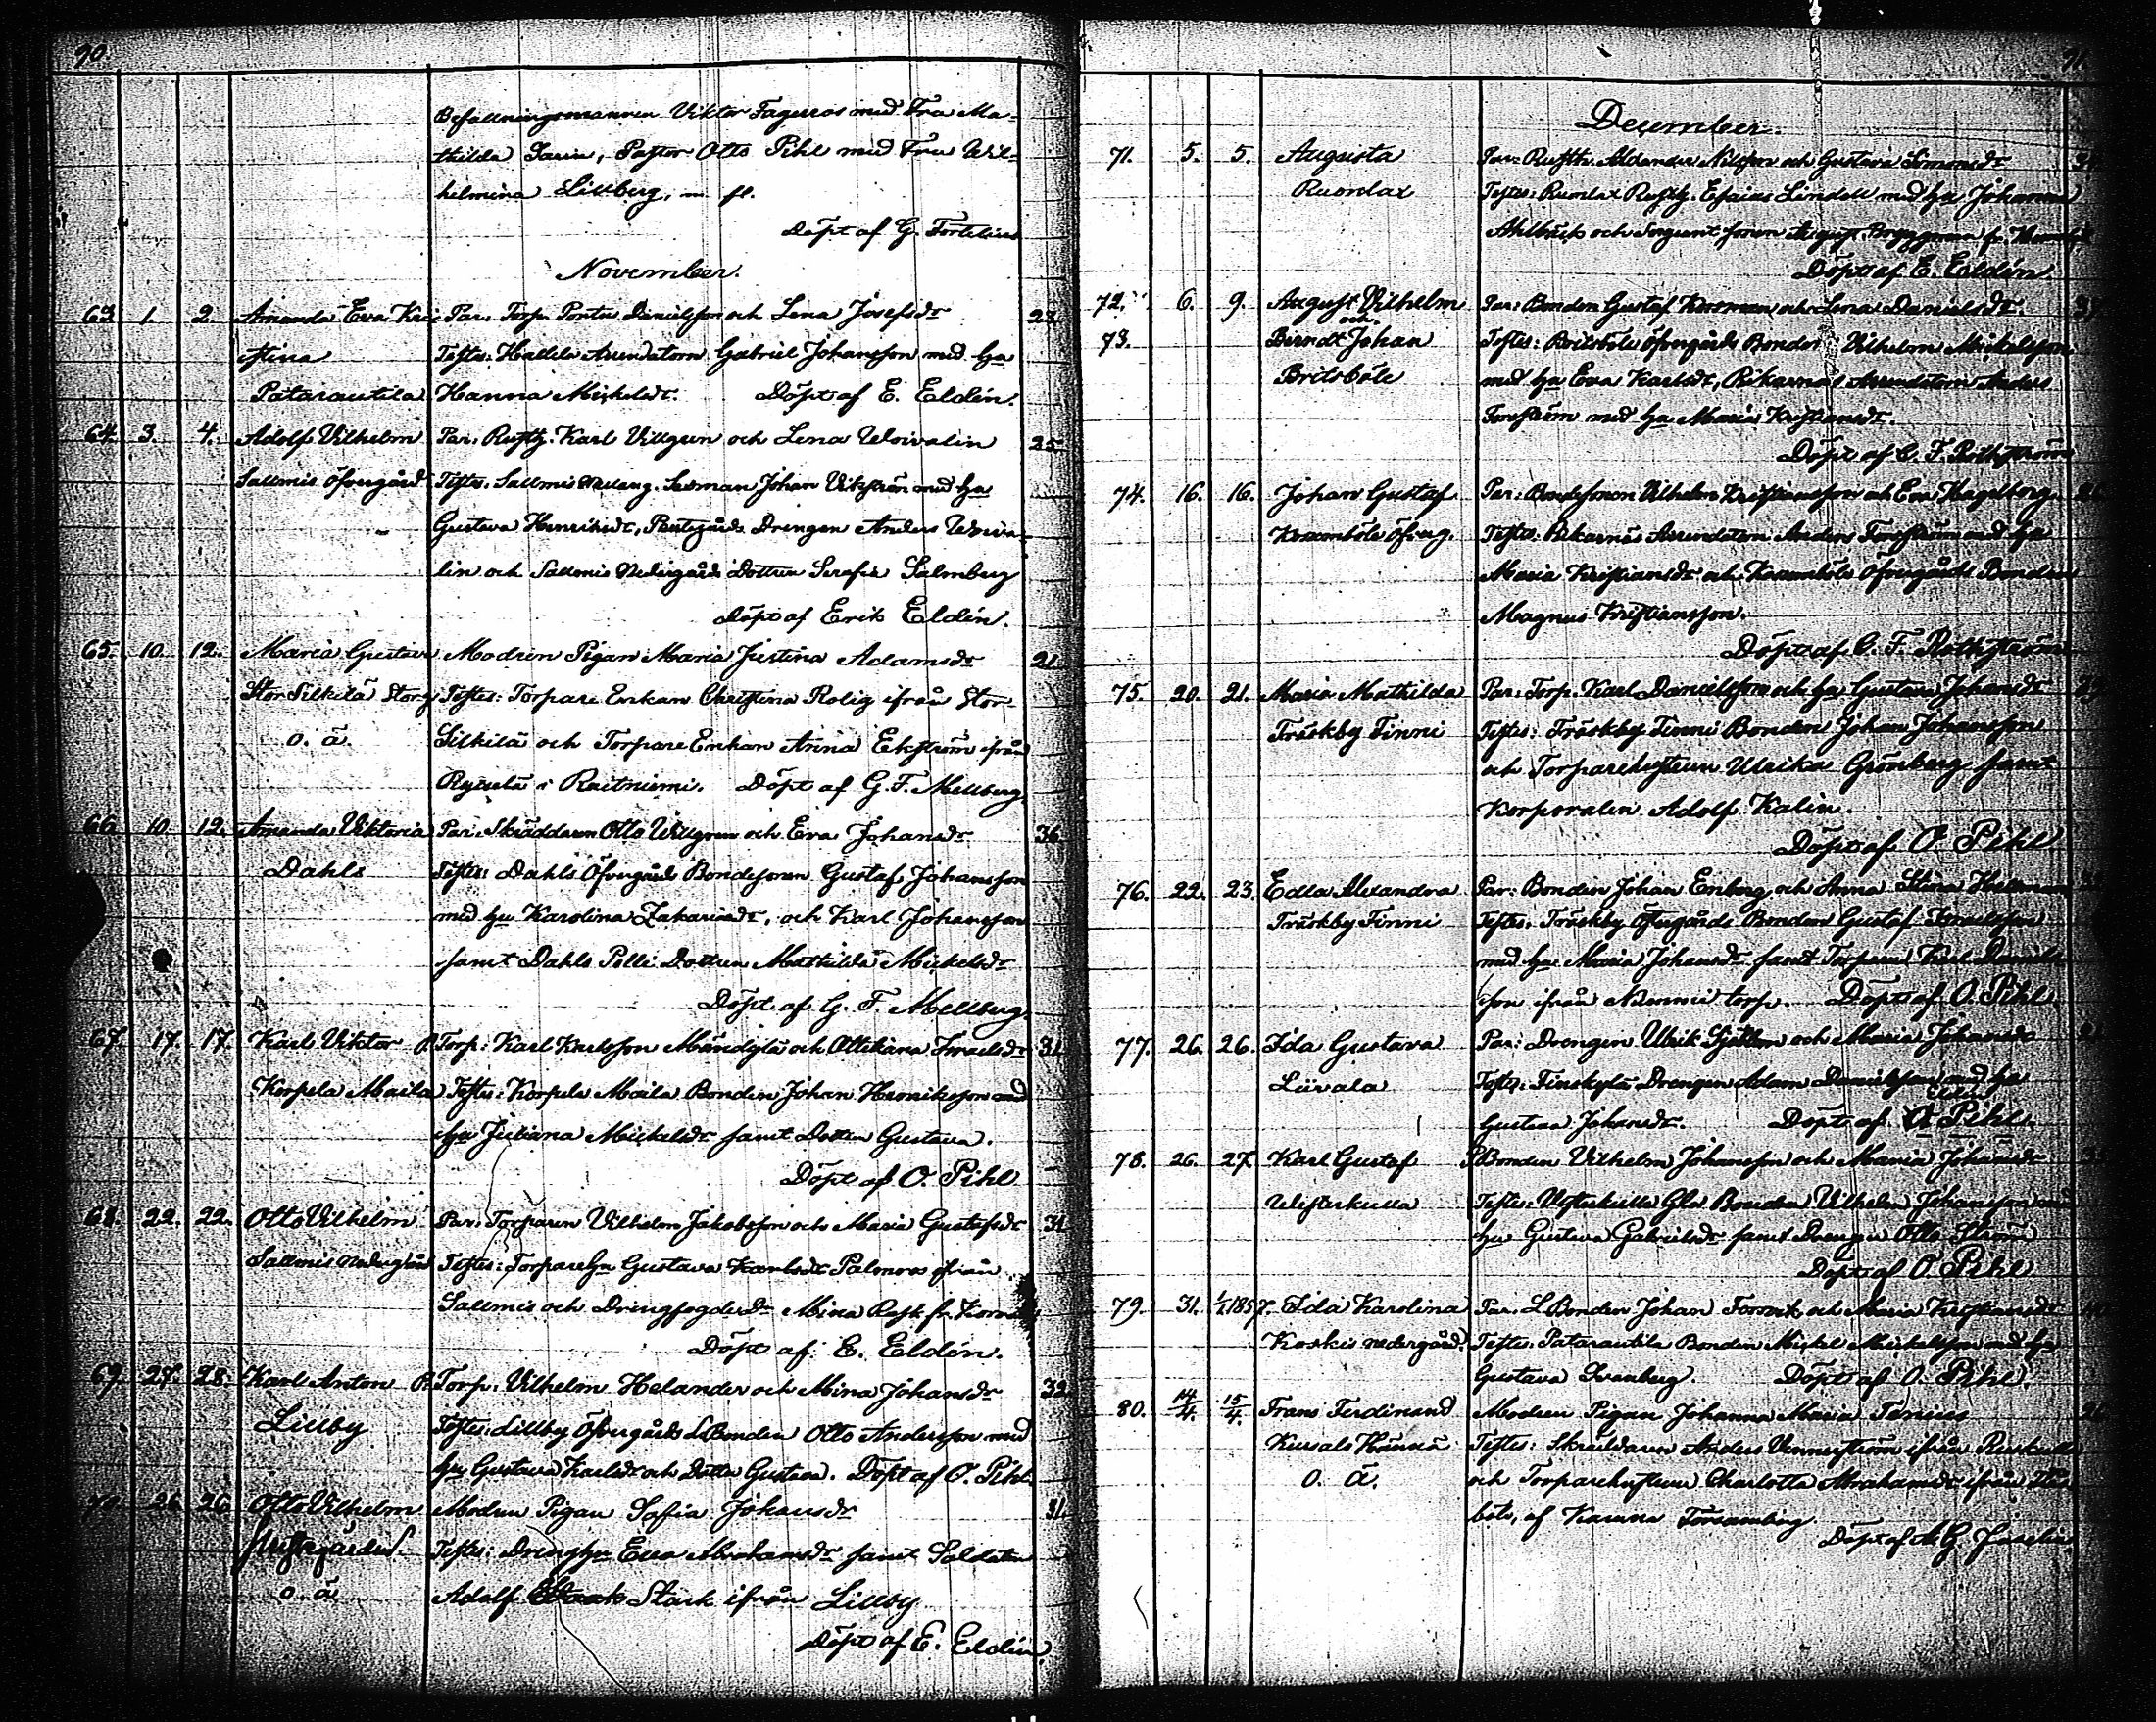 90.
Befallningsmannen Viktor Fagerros med Fru Ma-
thilda Sarin, Pastor Otto Pihl med Fru Wil-
helmina Lillberg, m. fl.
Döpt af G. Fortelius
November.
63. 1. 2. Amanda Eva Kri- Par. Torp. Pontu Danielsson och Lena Josefsdr 23.
stina Testes: Hallela Arendatorn Gabriel Johansson med hu
Patarautila Hanna Mickelsdr. Döpt af E. Eldén.
64. 3. 4. Adolf Vilhelm Par. Rusth. Karl Villgren och Lena Woivalin 25.
Sallmis öfvergård Testes. Sallmis Johan Vikström med hu
Gustava Henriksdr, Drengen Anders Woiva-
lin och Sallmis Nedergårds Dottren Serafia Salmberg
Döpt af Erik Eldén.
65. 10. 12. Maria Gustava Modren Pigan Maria Justina Adamsdr 21.
Stor Silkilä Storg Testes: Torpare Enkan Christina Rolig ifrån Stor
o. ä. Silkilä och Torpare Enkan Anna Ekström ifrån
i Raitniemi. Döpt af G. F. Mellberg.
66. 10. 12. Amanda Viktoria Par. Skräddaren Otto Willgren och Eva Johansdr 36.
Dahls Testes: Dahls Öfvergårds Bondesonen Gustaf Johansson
med hu Karolina Zakariasdr, och Karl Johansson
samt Dahls Pelli Dottren Mathilda Mickelsdr
Döpt af G. F. Mellberg.
67. 17. 17. Karl Viktor P. Torp: Karl Karlsson Mändylä och Ottiliana Israelsdr 31.
Korpela Maila Testes: Korpela Maila Bonden Johan Henriksson med
hu Juliana Mickelsdr samt Dotten Gustava.
Döpt af O. Pihl
68. 22. 22. Otto Vilhelm Par. Torparen Vilhelm Jakobsson och Maria Gustafsdr 31.
Sallmis Nedergård Testes: Torparehu Gustava Karlsdr Palmros ifrån
Sallmis och Drengfogde Dr Mina Rask fr.
Döpt af E. Eldén.
69. 27. 28. Karl Anton P. Torp. Vilhelm Helander och Mina Johansdr 32.
Lillby Testes: Lillby Öfvergårds LBonden Otto Andersson med
hu Gustava Karlsdr och Dotter Gustava. Döpt af O. Pihl.
70. 26. 26. Otto Vilhelm Modren Pigan Sofia Johansdr 31.
Testes: Drenghu Eva Abrahamsdr samt Soldaten
o. ä. Adolf Stark ifrån Lillby
Döpt af E. Eldén.
91.
December.
71. 5. 5. Augusta Par. Rusth. Alexander Nilsson och Gustava Simonsdr
Ruonlax Testes: Ruonlax Rusth. Esaias Lindell med hu Johanna
Ahlbäck och Sergeant sonen August
Döpt af E. Eldén
72. 6. 9. August Vilhelm Par: Bonden Gustaf och Lena Danielsdr.
och
73. Berndt Johan Testes: Britsböle öfvergårds Bonden Vilhelm Mickelsson
Britsböle med hu Eva Karlsdr, Rikarnäs Arrendatorn Anders
Forsström med hu Maria Kristiansdr.
Döpt af C. F. Rothström
74. 16. 16. Johan Gustaf Par: Bondesonen Vilhelm Kristiansson och Eva Hagelborg
Kosamböle öfverg. Testes: Rikarnäs Arrendatorn Anders Forsström med hu
Maria Kristiansdr och Kosamböle Öfvergårds Bonden
Magnus Kristiansson.
Döpt af C. F. Rothström
75. 20. 21. Maria Mathilda Par: Torp. Karl Danielsson och hu Gustava Johansdr
Träskby Finni Testes: Träskby Finni Bonden Johan Johansson
och Torparehustrun Ulrika Grönberg samt
Korporalen Adolf Kalin.
Döpt af O. Pihl
76. 22. 23. Edla Alexandra Par: Bonden Johan Enberg och Anna Stina
Träskby Finni Testes. Träskby Öfvergårds Bonden Gustaf Israelsson
med hu Maria Johansdr samt Torparen Karl Daniels
son ifrån Nimmi torp. Döpt af O. Pihl.
77. 26. 26. Ida Gustava Par: Drengen Ulrik och Maria Johansdr
Liivala Testes: Finskylä Drengen Adam Danielsson med hu
Gustava Johansdr. Döpt af O. Pihl.
78. 26. 27. Karl Gustaf P. Bonden Vilhelm Johansson och Maria Johansdr
Westerkulla Testes: Westerkulla Gla Bonden Vilhelm Johansson med
hu Gustava Gabrielsdr samt Drengen Otto Ström
Döpt af O. Pihl
79. 31. 1/1 1857. Ida Karolina Par. L Bonden Johan och Maria Kristiansdr
Koskis nedergård. Testes: Patarautila Bonden Mickel Mickelsson med hu
Gustava Svanberg. Döpt af O. Pihl.
80. 14/4. 15/4. Frans Ferdinand Modren Pigan Johanna Maria
Kursals Hännä Testes: Skräddaren Anders Vennerström ifrån
o. ä. och Torparehustrun Charlotta Abrahamsdr ifrån
böle, af Karuna Församling
Döpt af A. G.